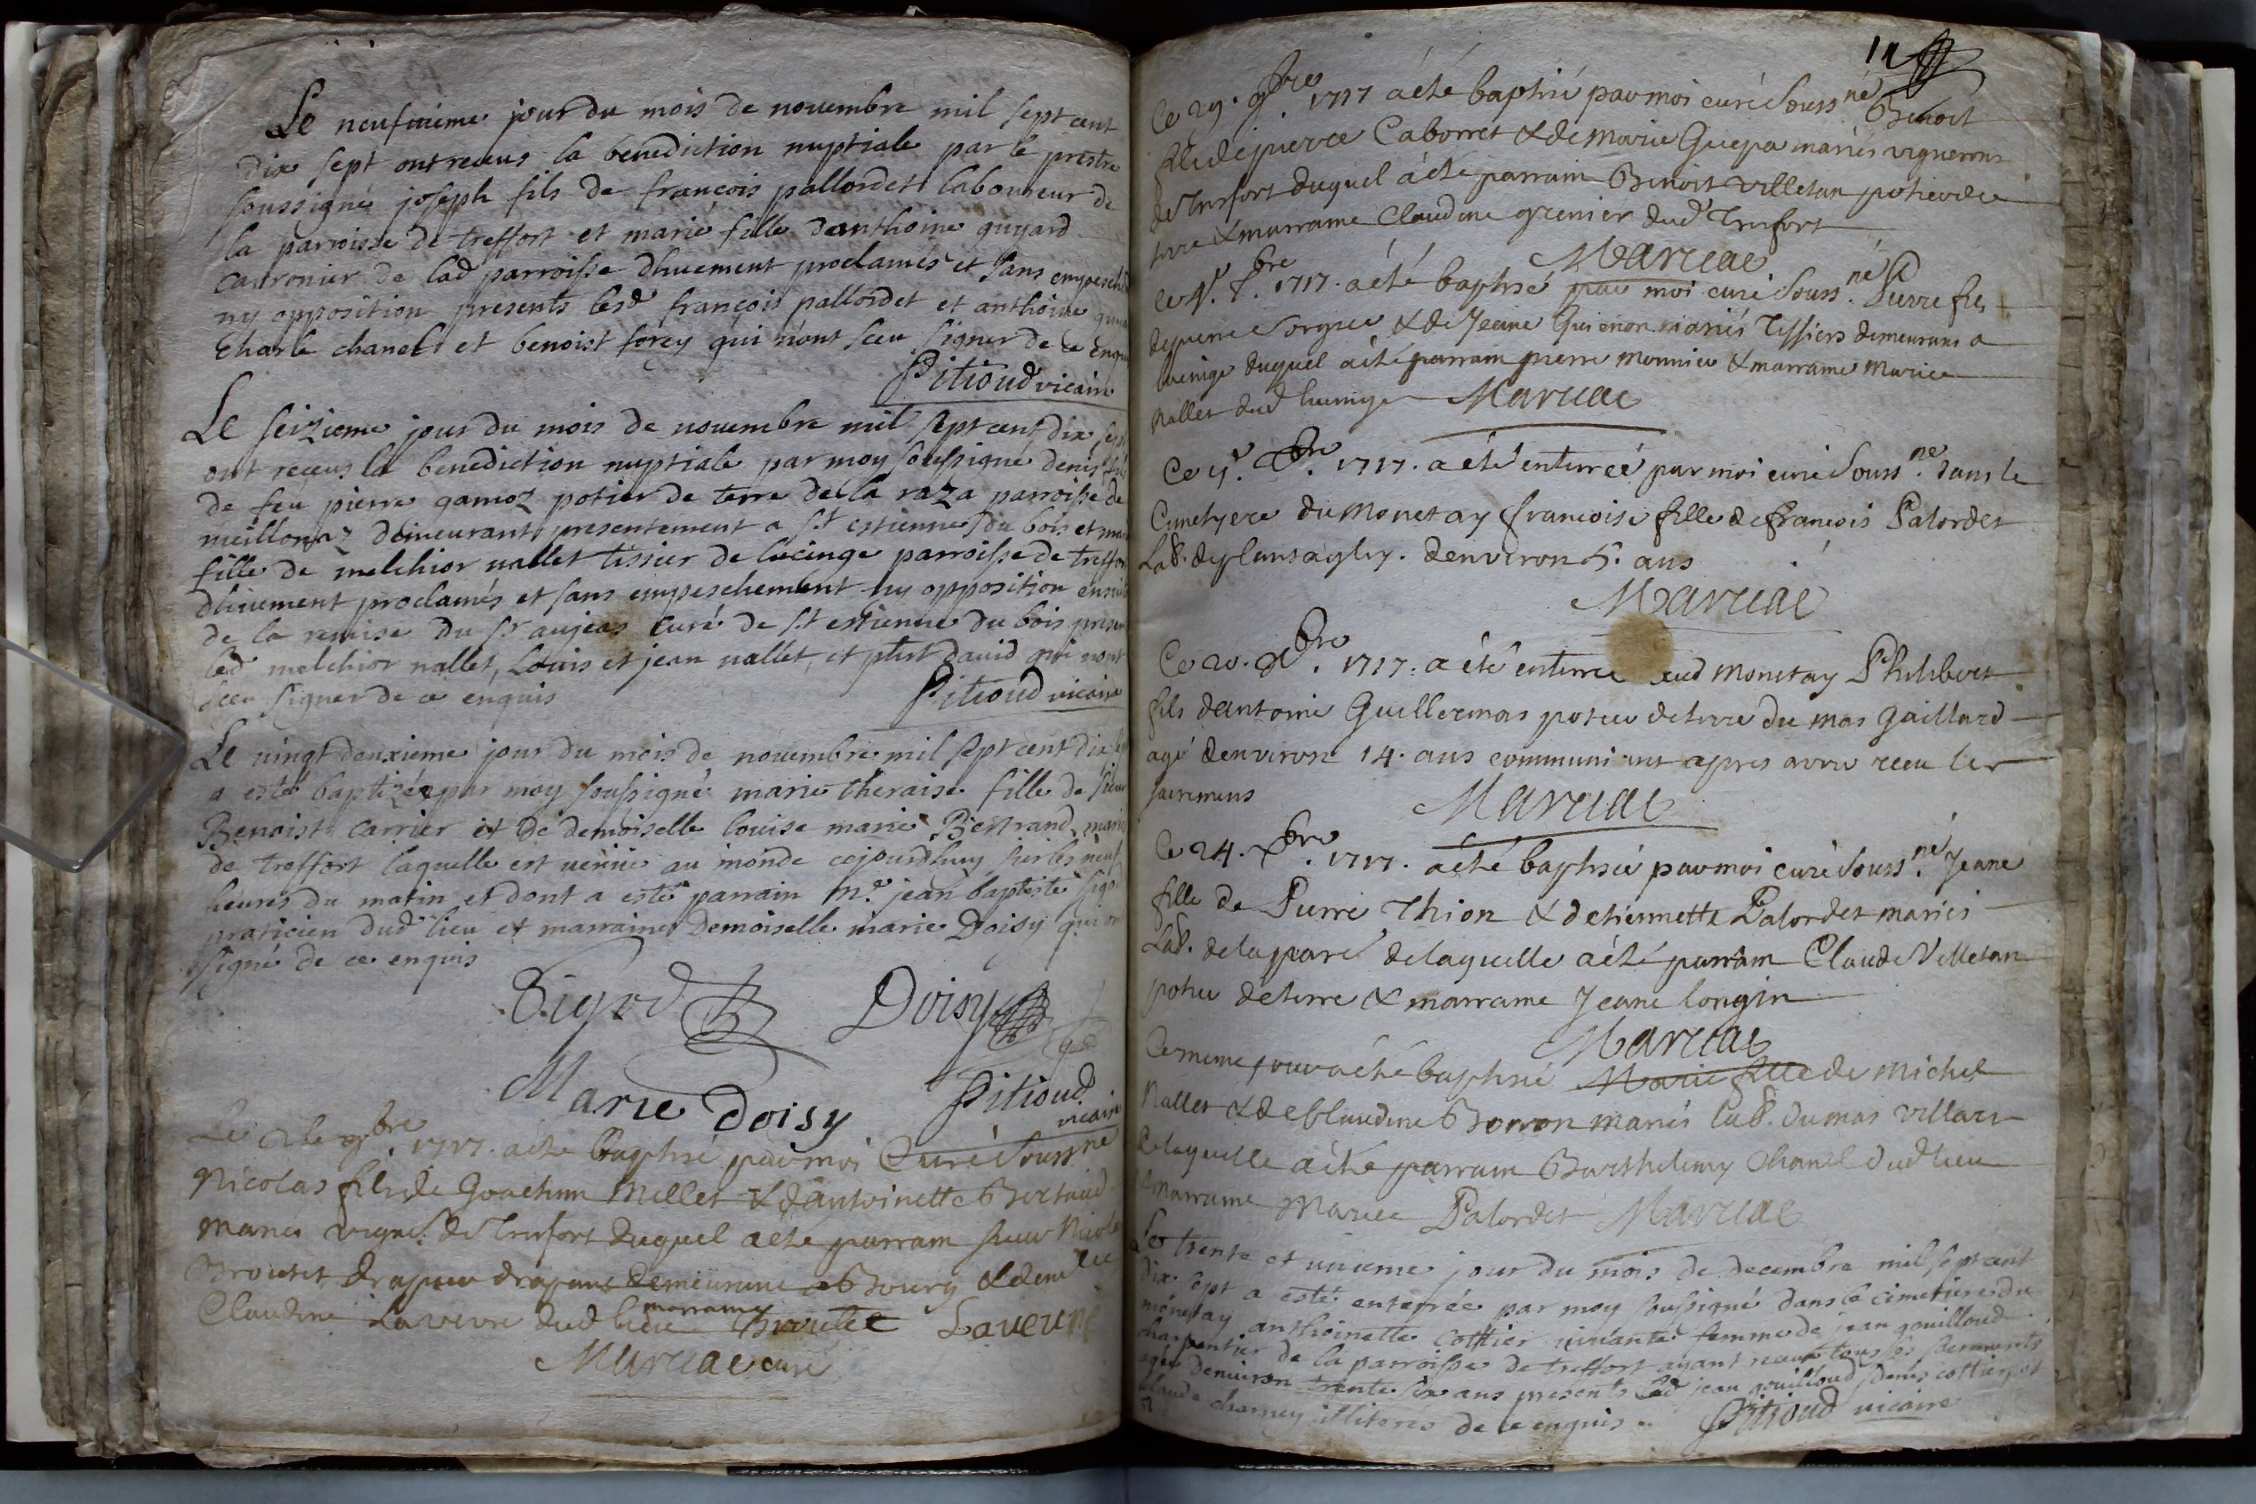 Le neufvieme jour du mois de novembre mil sept cent
dix sept ont receus la benediction nuptiale par le prestre
soussigné joseph fils de françois pallordet laboureur de
la parroisse de treffort et marie fille danthoine guyard
carronier de lad parroisse dhuement proclamés et sans empesche
ny opposition presents lesd françois pallordet et anthoine
Charle chanel et benoist forey qui nont sceu signer de ce enquis
Pitioud vicaire
Le seizieme jour du mois de novembre mil sept cent dix sept
ont receus la benediction nuptiale par moy soussigné denis fils
de feu pierre gamoz potier de terre de la raza parroisse de
meillonaz demeurant presentement a st estienne du bois et
fille de melchior nallet tissier de lucinge parroisse de treffort
dhuement proclamés et sans empeschement ny opposition ensuite
de la remise du sr aujeas curé de st estienne du bois
led melchior nallet, Louis et jean nallet, et phst david qui nont
sceu signer de ce enquis
Pitioud vicaire
Le vingt deuxieme jour du mois de novembre mil sept cent dix
a esté baptizée par moy soussigné marie theraise fille de sieur
Benoist carrier et de demoiselle louise marie Bertrand mariés
de treffort laquelle est venüe au monde cejourdhuy sur les neuf
heures du matin et dont a esté parrain Mr jean baptiste sigod
praticien dud lieu et marraine Demoiselle marie Doisy qui ont
signé de ce enquis
Sigod Doisy
Marie Doisy
Pitioud
vicaire
9bre 1717. a été baptisé par moi Curé Soussné
Nicolas fils de Joachim Millet & dantoinette Bertaud
mariés vigns de Treffort duquel a été parrain sieur Nicolas
Broutet drapier drapant demeurant a Bourg & demlle
Claudine Laverne dud lieu marraine Broutet Laverne
Marciac curé
Ce 29. 9bre 1717 a été baptisé par moi curé Soussné Benoit
fils de pierre Caborret & de Marie Guepa mariés vignerons
de Treffort duquel a été parrain Benoit Villetan potier de
terre & marraine Claudine grenier dud Treffort
Marciac
1717. a été baptisé par moi curé Soussné Pierre fils
de pierre Sorgue & de Jeane Guienon mariés Tissiers demeurans a
lucinge duquel a été parrain pierre Monnier & marraine Marie
Nallet dud lucinge Marciac
1717. a été enterrée par moi curé Soussné dans le
Cimetyere du Monetay francoise fille de francois Palordet
Lab. denviron 5. ans
Marciac
Ce 20. Xbre. 1717. a été enterré aud Monetay Philibert
fils dantoine Guillermas potier de terre du mas Gaillard
agé denviron 14. ans communiant apres avoir receu les
sacremens Marciac
Ce 24. Xbre. 1717. a été baptisée par moi curé Soussné Jeane
fille de Pierre Thion & detiennette Palordet mariés
Lab. de laquelle a été parrain Claude Villetan
potier de terre & marraine Jeane longin
Marciac
Ce meme jour a été baptisée Marie fille de Michel
Nallet & de Claudine Borron mariés lab. du mas villars
de laquelle a été parrain Barthelemy Chanel dud lieu
& marraine Marie Palordet Marciac
Le trente et unieme jour du mois de decembre mil sept cent
dix sept a esté enterrée par moy soussigné dans le cimetiere du
monetay anthoinette cottier vivante femme de jean gouilloud
charpentier de la parroisse de treffort ayant receu tous les sacrements
agée denviron trente six ans presents led jean gouilloud denis cottier et
claude charney illiterés de ce enquis
Pitioud vicaire